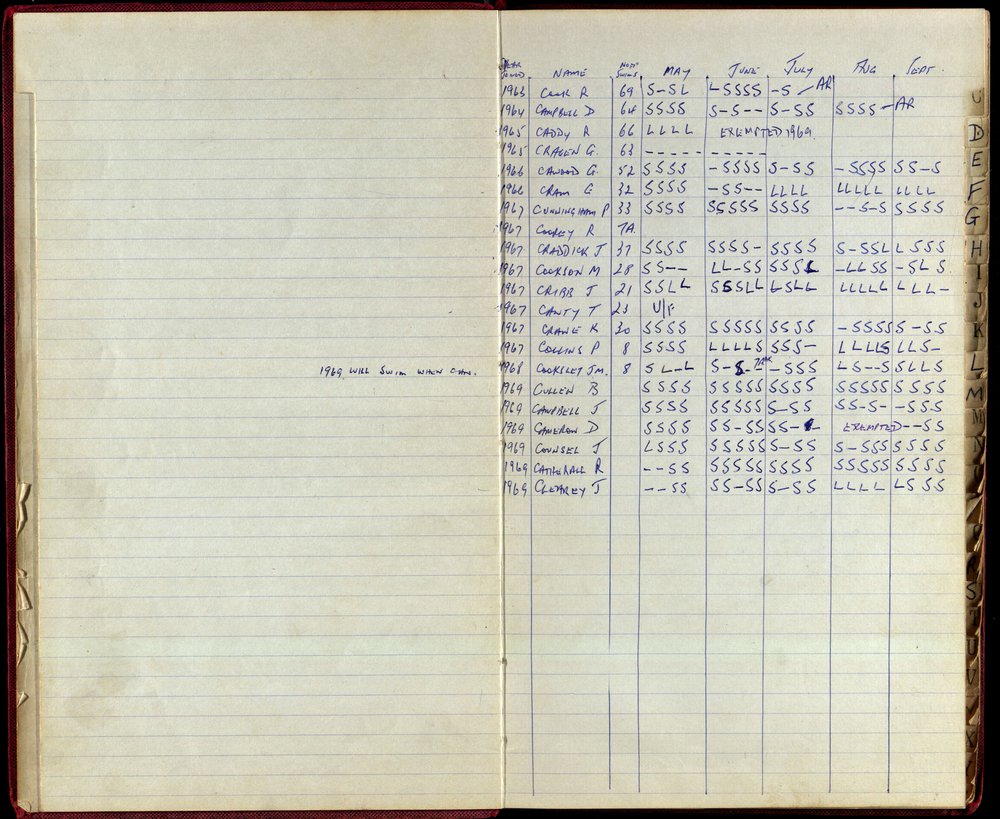 YEAR JOINED NAME NO OF SWIMS MAY JUNE JULY AUG SEPT.
1963 COOK R 69 S-SL LSSSS -S - AR
1964 CAMPBELL D 64 SSSS S-S-- S-SS SSSS - AR
1965 CADDY R 66 LLLL EXEMPTED 1969.
1965 G. 63 ----- ------
1966 CAWOOD G. 52 SSSS -SSSS S-SS -SSSS SS-S
1966 CRAM G 32 SSSS -SS-- LLLL LLLLL LLLL
1967 CUNNINGHAM P 33 SSSS SSSSS SSSS --S-S SSSS
1967 R TA.
1967 CRADDICK J 37 SSSS SSSS- SSSS S-SSL LSSS
1967 COOKSON M 28 SS-- LL-SS SSSL -LLSS -SLS
1967 CRIBB J 21 SSLL SSSLL LSLL LLLLL LLL-
1967 CANTY T 23 U/F
1967 CRANE K 30 SSSS SSSSS SSSS -SSSS S-SS
1967 COLLINS P 8 SSSS LLLLS SSS- LLLLS LLS-
1969 WILL SWIM WHEN CAN. 1968 COOKSLEY JM. 8 SL-L S-S- -SSS LS--S SLLS
1969 CULLEN B SSSS SSSSS SSSS SSSSS SSSS
1969 CAMPBELL J SSSS SSSSS S-SS SS-S- -SSS
1969 CAMERON D SSSS SS-SS SS-- EXEMPTED --SS
1969 COUNSEL J LSSS SSSSS S-SS S-SSS SSSS
1969 CATHERALL R --SS SSSSS SSSS SSSSS SSSS
1969 CLEAREY J --SS SS-SS S-SS LLLL LSSS
C
D
E
F
G
H
I
J
K
L
M
R
S
T
U
V